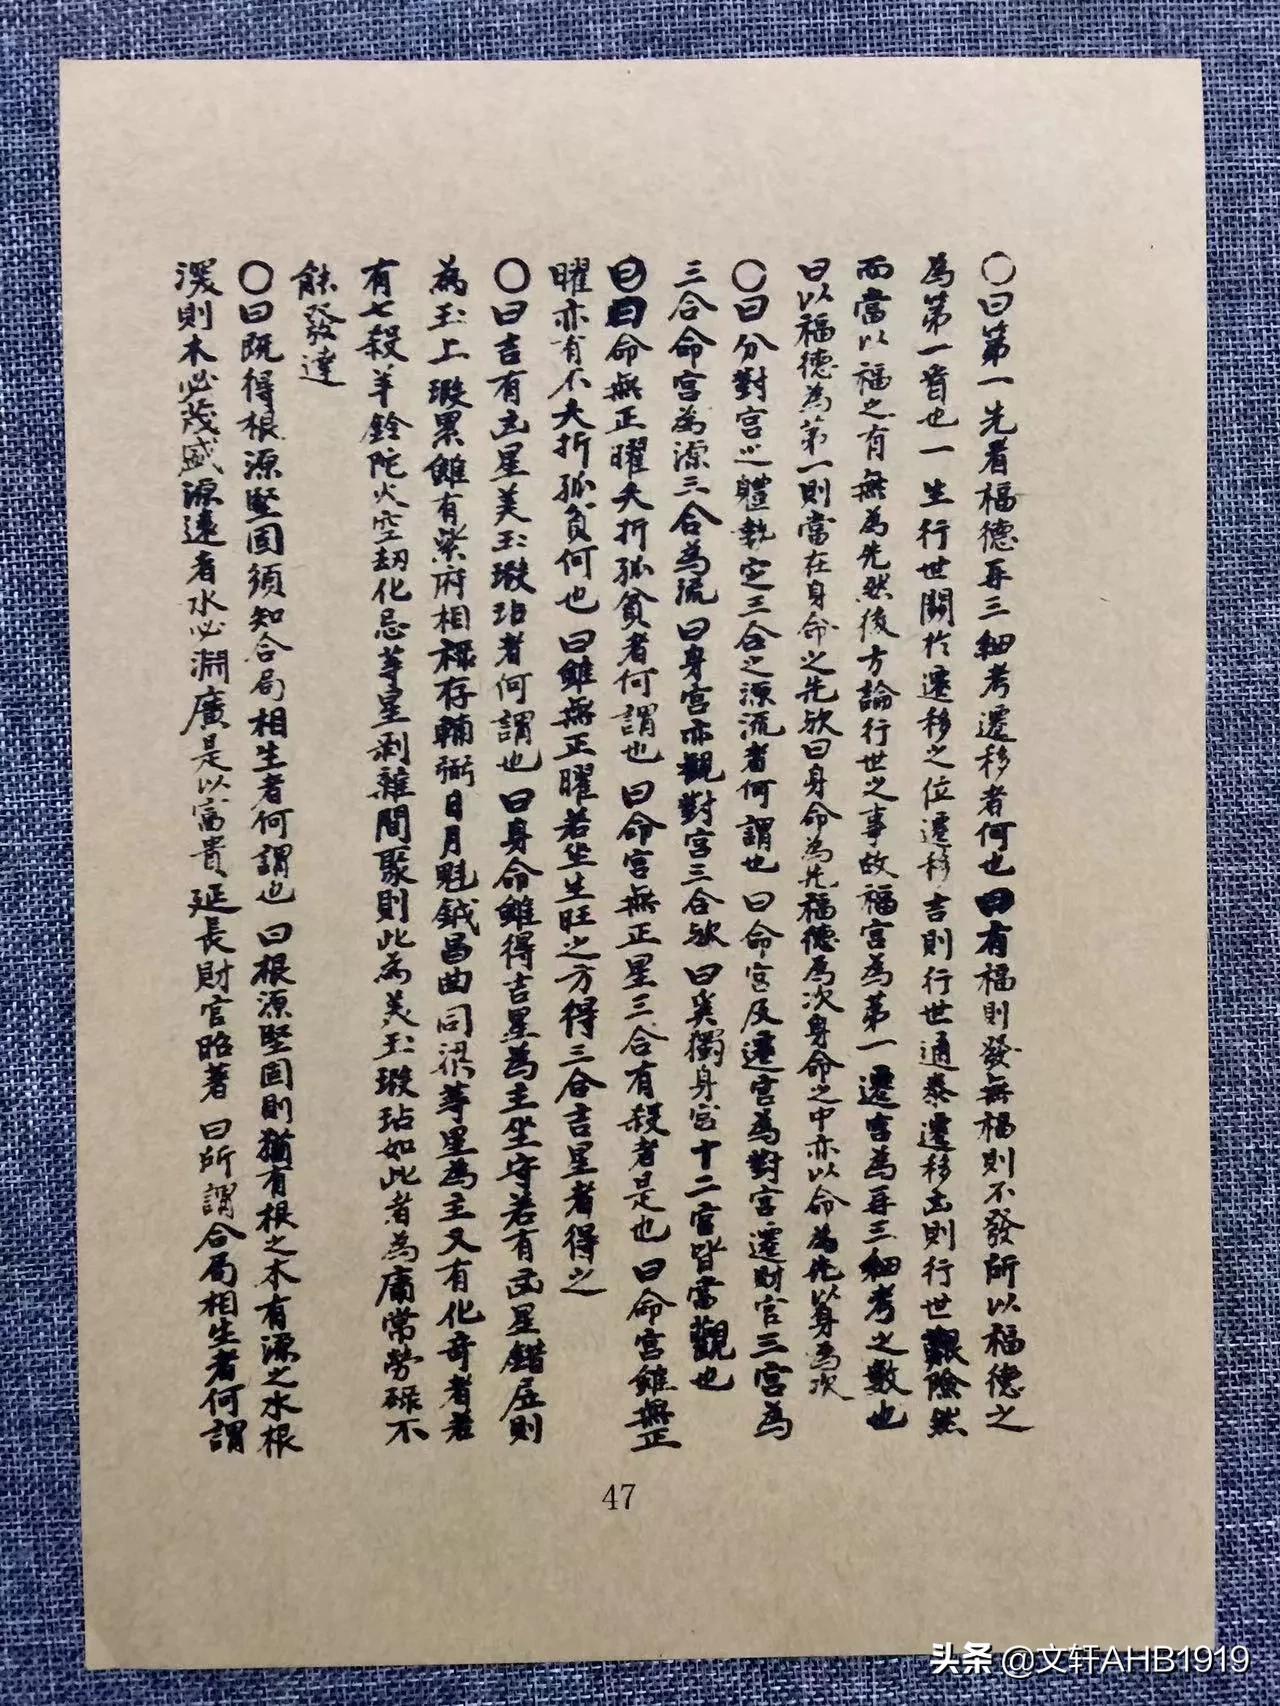 〇曰第一先看福德再三細考遷移者何也曰有福則發無福則不發所以福德之
為第一者也一生行世關於遷移之位遷移吉則行世通泰遷移凶則行世艱險然
而當以福之有無為先然後方論行世之事故福宮為第一遷宮為再三細考之數也
曰以福德為第一則當在身命之先欤曰身命為先福德為次身命之中亦以命為先以身為次
〇曰分對宮之體執定三合之源流者何謂也曰命宮及遷宮為對宮遷財官三宮為
三合命宮為源三合為流曰身宮亦觀對宮三合欤曰奚獨身宮十二宮皆當觀也
曰曰命無正曜夭折孤貧者何謂也曰命宮無正星三合有殺者是也曰命宮雖無正
曜亦有不夭折孤負何也曰雖無正曜若坐生旺之方得三合吉星者得之
〇曰吉有凶星美玉瑕玷者何謂也曰身命雖得吉星為主坐守若有凶星錯居則
為玉上瑕累雖有紫府相祿存輔弼日月魁鉞昌曲同梁等星為主又有化奇者若
有七殺羊鈴陀火空劫化忌等星剥雜間聚則此為美玉瑕玷如此者為庸常勞碌不
能發達
〇曰既得根源堅固須知合局相生者何謂也曰根源堅固則猶有根之木有源之水根
深則木必茂盛源遠者水必淵廣是以富貴延長財官昭著曰所謂合局相生者何謂
47
头条 @文轩AHB1919